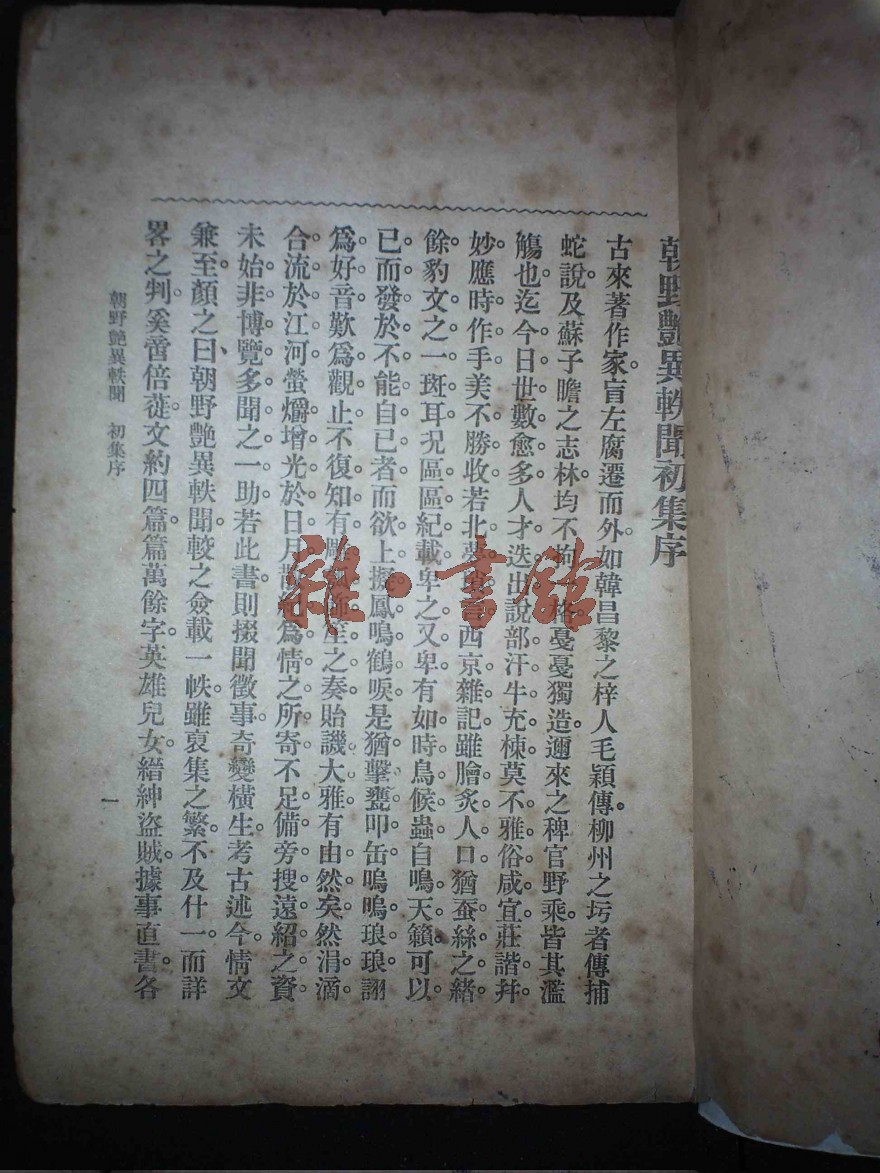 朝野艷異軼聞初集序
古來著作家。盲左腐遷而外。如韓昌黎之梓人毛穎傳。柳州之圬者傳捕
蛇說。及蘇子瞻之志林。均不拘一格。戞戞獨造。邇來之稗官野乘。皆其濫
觴也。迄今日世數愈多。人才迭出。說部汗牛充棟。莫不雅俗咸宜。莊諧幷
妙。應時作手。美不勝收。若北夢瑣言。西京雜記。雖膾炙人口。猶蚕絲之緒
餘。豹文之一斑耳。况區區紀載。卑之又卑。有如時鳥候蟲。自鳴天籟。可以
已而發於不能自已者。而欲上擬鳳鳴鶴唳。是猶擊甕叩缶。嗚嗚琅琅。詡
爲好音。歎爲觀止。不復知有之奏。貽譏大雅。有由然矣。然涓滴
合流於江河。螢爝增光於日月。爲情之所寄。不足備旁搜遠紹之資。
未始非博覽多聞之一助。若此書則掇聞徵事。奇變橫生。考古述今。情文
兼至。顏之曰、朝野艷異軼聞。較之僉載一帙。雖裒集之繁。不及什一。而詳
畧之判。奚啻倍蓰。文約四篇。篇萬餘字。英雄兒女。縉紳盜賊。據事直書。各
朝野艷異軼聞 初集序
一
雜·書館